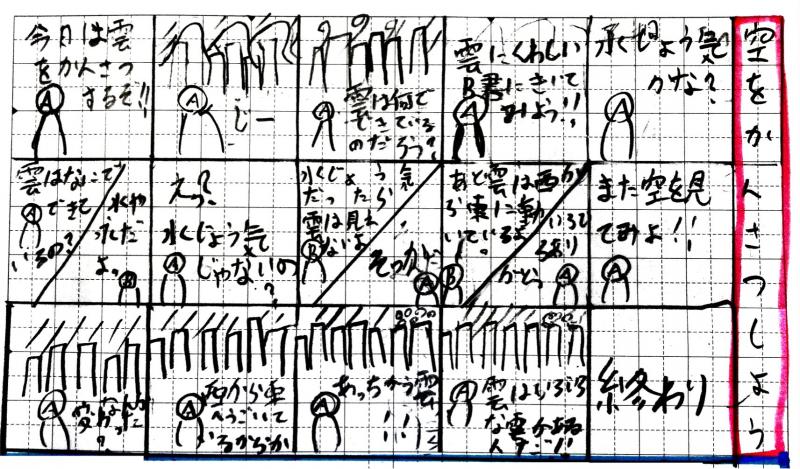 空をかんさつしよう
今日は雲
をかんさつ
するぞ!!
A
A
じー
雲は何で
できている
のだろう?
A
雲にくわしい
B君にきいて
みよう!!
A
水じょう気
かな?
A
雲はなにで
できて
いるの?
A
水や
氷だ
よ。
B
えっ?
水じょう気
じゃないの
?
A
水じょう気
だったら
雲は見え
ないよ
B
そっかぁ
A
あと雲は西か
ら東に動
いている
B
いろいろ
あり
がとう
A
また空を見
てみよ!!
A
A
西から東
へうごいて
いるからか
A
A
雲はいろいろ
な雲がある
A
終わり